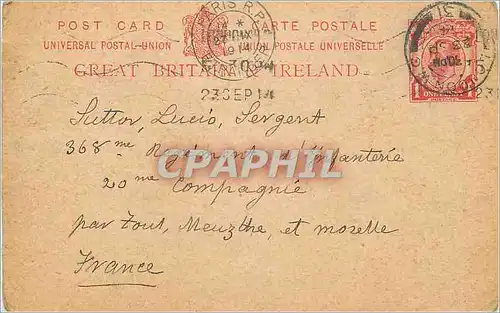 POST CARD CARTE POSTALE
UNIVERSAL POSTAL-UNION POSTALE UNIVERSELLE
GREAT BRIT IRELAND
PARIS R.P.
23 SEP 14
Suttor, Lucis, Sergent
368 me Régiment d'Infanterie
20 me Compagnie
par Toul, Meuzthe, et moselle
France
CPAPHIL